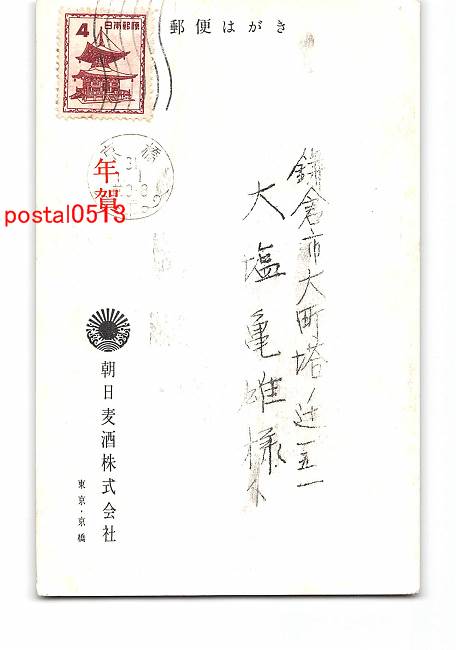 郵便はがき
4
日本郵便
年賀
postal0513
鎌倉市大町塔ノ辻一五一
大塩亀雄様
朝日麦酒株式会社
東京・京橋